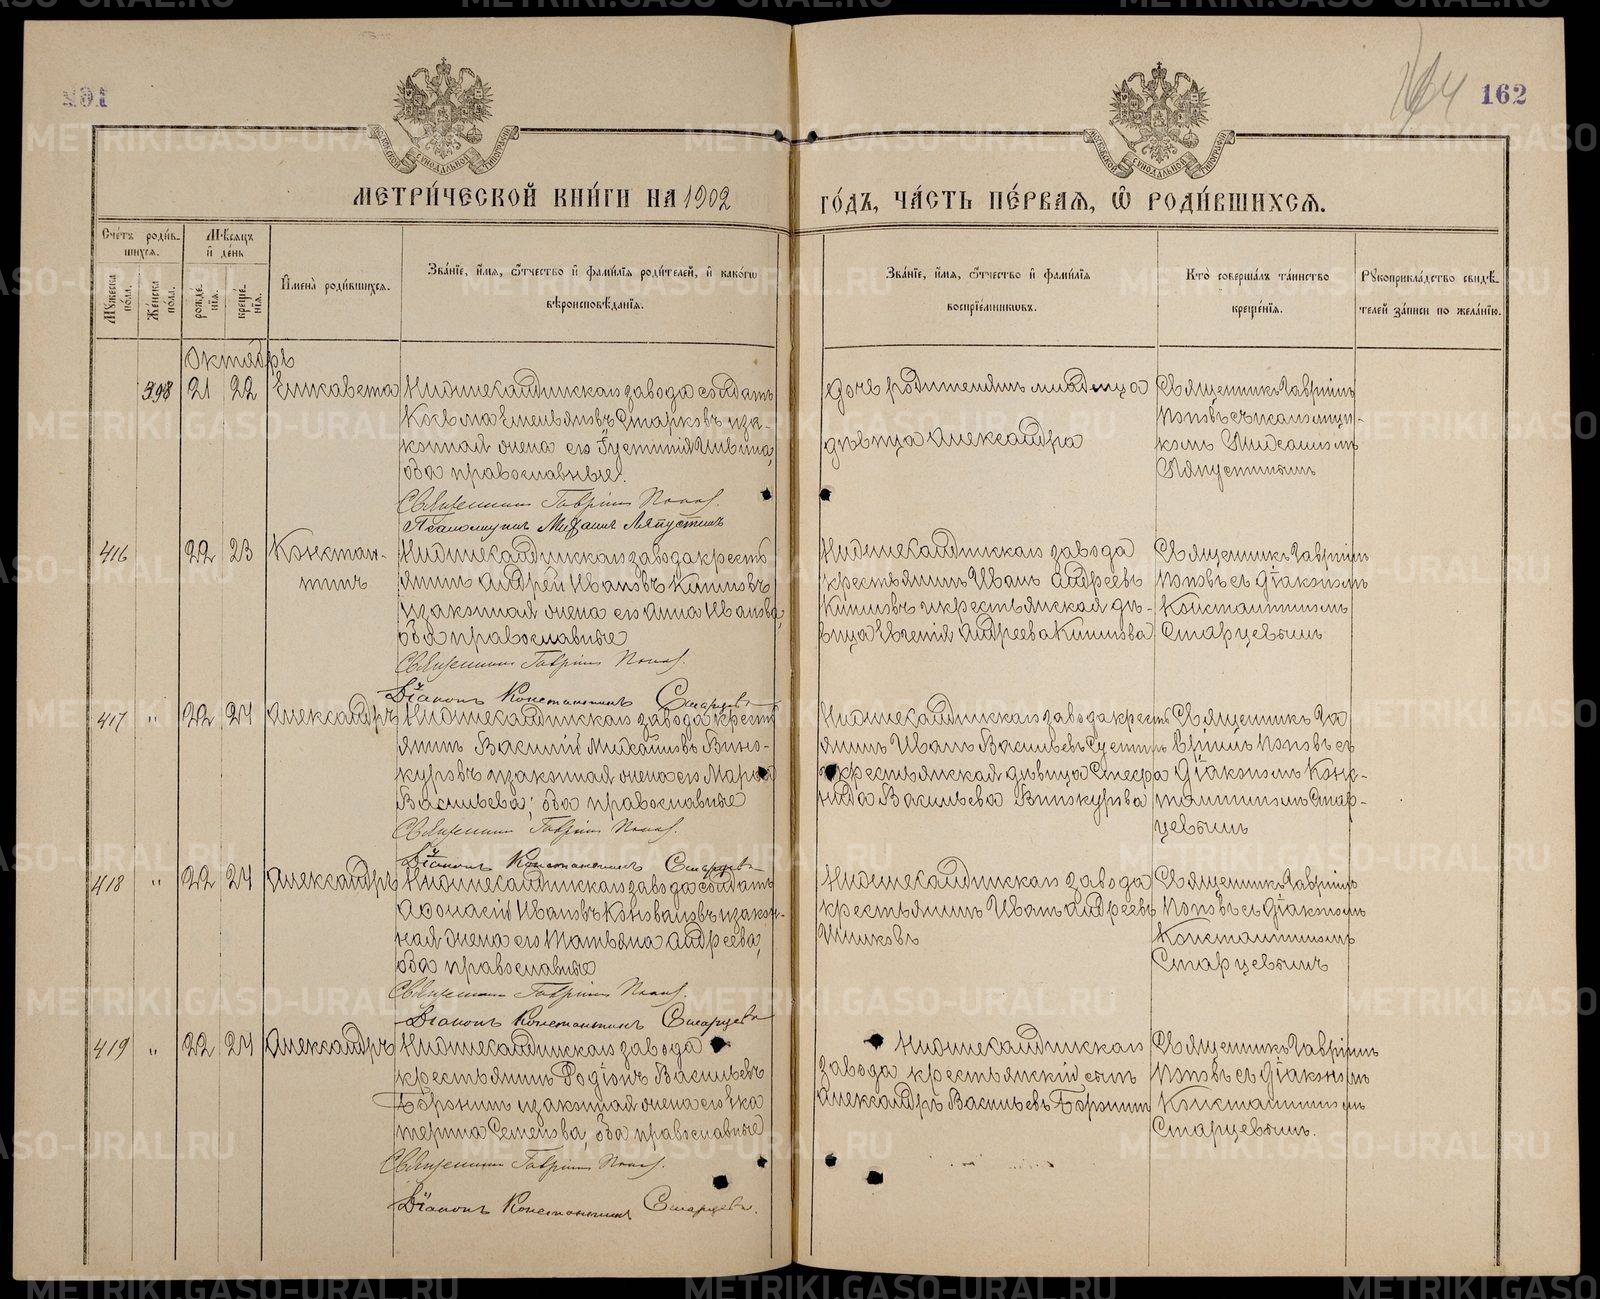 162
МЕТРИ́ЧЕСКОЙ КНИ́ГИ НА 1902
ГО́ДЪ, ЧА́СТЬ ПЕ́РВАЯ, Ѽ РОДИ́ВШИХСЯ.
Сче́тъ роди́в-
шихся.
Му́жеска по́ла.
Же́нска по́ла.
Мѣ́сяцъ и де́нь
рожде́нія.
креще́нія.
Имена̀ роди́вшихся.
Зва́нїе, и́мя, ѻ҆́тчество и фами́лїя роди́телей, и како́гѡ
вѣроисповѣ́данїя.
Зва́нїе, и́мя, ѻ҆́тчество и фами́лїя
воспрїе́мниковъ.
Кто̀ соверша́лъ та́инство
креще́нїя.
Рукоприкла́дство свидѣ́-
телей за́писи по жела́нїю.
Октябрь
398 21 22 Елисавета
Нижнесалдинскаго завода солдатъ
Косьма Емельяновъ Старковъ и за-
конная жена его
оба православные.
Священникъ Гавріилъ Поповъ.
Псаломщикъ Михаилъ Ляпустинъ
дочь родителямъ младенца
дѣвица Александра
Священникъ Гавріилъ
Поповъ съ псаломщи-
комъ Михаиломъ
Ляпустинымъ
416 22 23 Констан-
тинъ
Нижнесалдинскаго завода кресть
янинъ Андрей Ивановъ
и законная жена его Анна Иванова,
оба православные
Священникъ Гавріилъ Поповъ.
Діаконъ Константинъ Старцевъ
Нижнесалдинскаго завода
крестьянинъ Иванъ Андреевъ
и крестьянская дѣ-
вица Евгенія Андреева
Священникъ Гавріилъ
Поповъ съ діакономъ
Константиномъ
Старцевымъ
417 " 22 24 Александръ
Нижнесалдинскаго завода кресть
янинъ Василій Михайловъ Вино-
куровъ и законная жена его Марія
Васильева; оба православные
Священникъ Гавріилъ Поповъ.
Діаконъ Константинъ Старцевъ
Нижнесалдинскаго завода кресть
янинъ Иванъ Васильевъ
и крестьянская дѣвица Стефа
нида Васильева Винокурова
Священникъ Га
вріилъ Поповъ съ
діакономъ Конс-
тантиномъ Стар-
цевымъ
418 " 22 24 Александръ
Нижнесалдинскаго завода солдатъ
Аѳонасій Ивановъ Коноваловъ и закон-
ная жена его Татьяна Андреева,
оба православные
Священникъ Гавріилъ Поповъ.
Діаконъ Константинъ Старцевъ
Нижнесалдинскаго завода
крестьянинъ Иванъ Андреевъ
Священникъ Гавріилъ
Поповъ съ діакономъ
Константиномъ
Старцевымъ
419 " 22 24 Александръ
Нижнесалдинскаго завода
крестьянинъ Родіонъ Васильевъ
и законная жена его Ека
терина Семенова, оба православные
Священникъ Гавріилъ Поповъ.
Діаконъ Константинъ Старцевъ.
Нижнесалдинскаго
завода крестьянскій сынъ
Александръ Васильевъ
Священникъ Гавріилъ
Поповъ съ діакономъ
Константиномъ
Старцевымъ.
METRIKI.GASO-URAL.RU